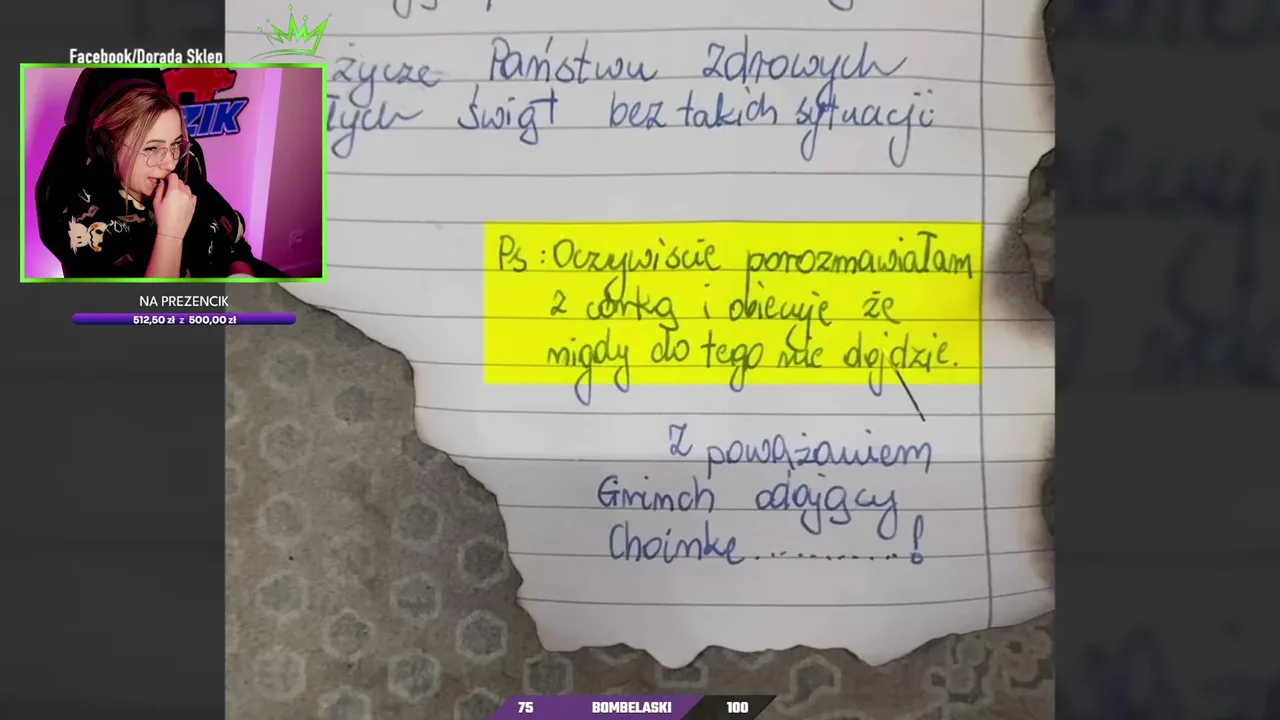 Facebook/Dorada Sklep
ZIK
NA PREZENCIK
512,50 zł z 500,00 zł
życzę Państwu Zdrowych
łych Świąt bez takich sytuacji
Ps: Oczywiście porozmawiałam
z córką i obiecuję że
nigdy do tego nie dojdzie.
Z poważaniem
Grinch oddający
Choinkę...........!
75 BOMBELASKI 100